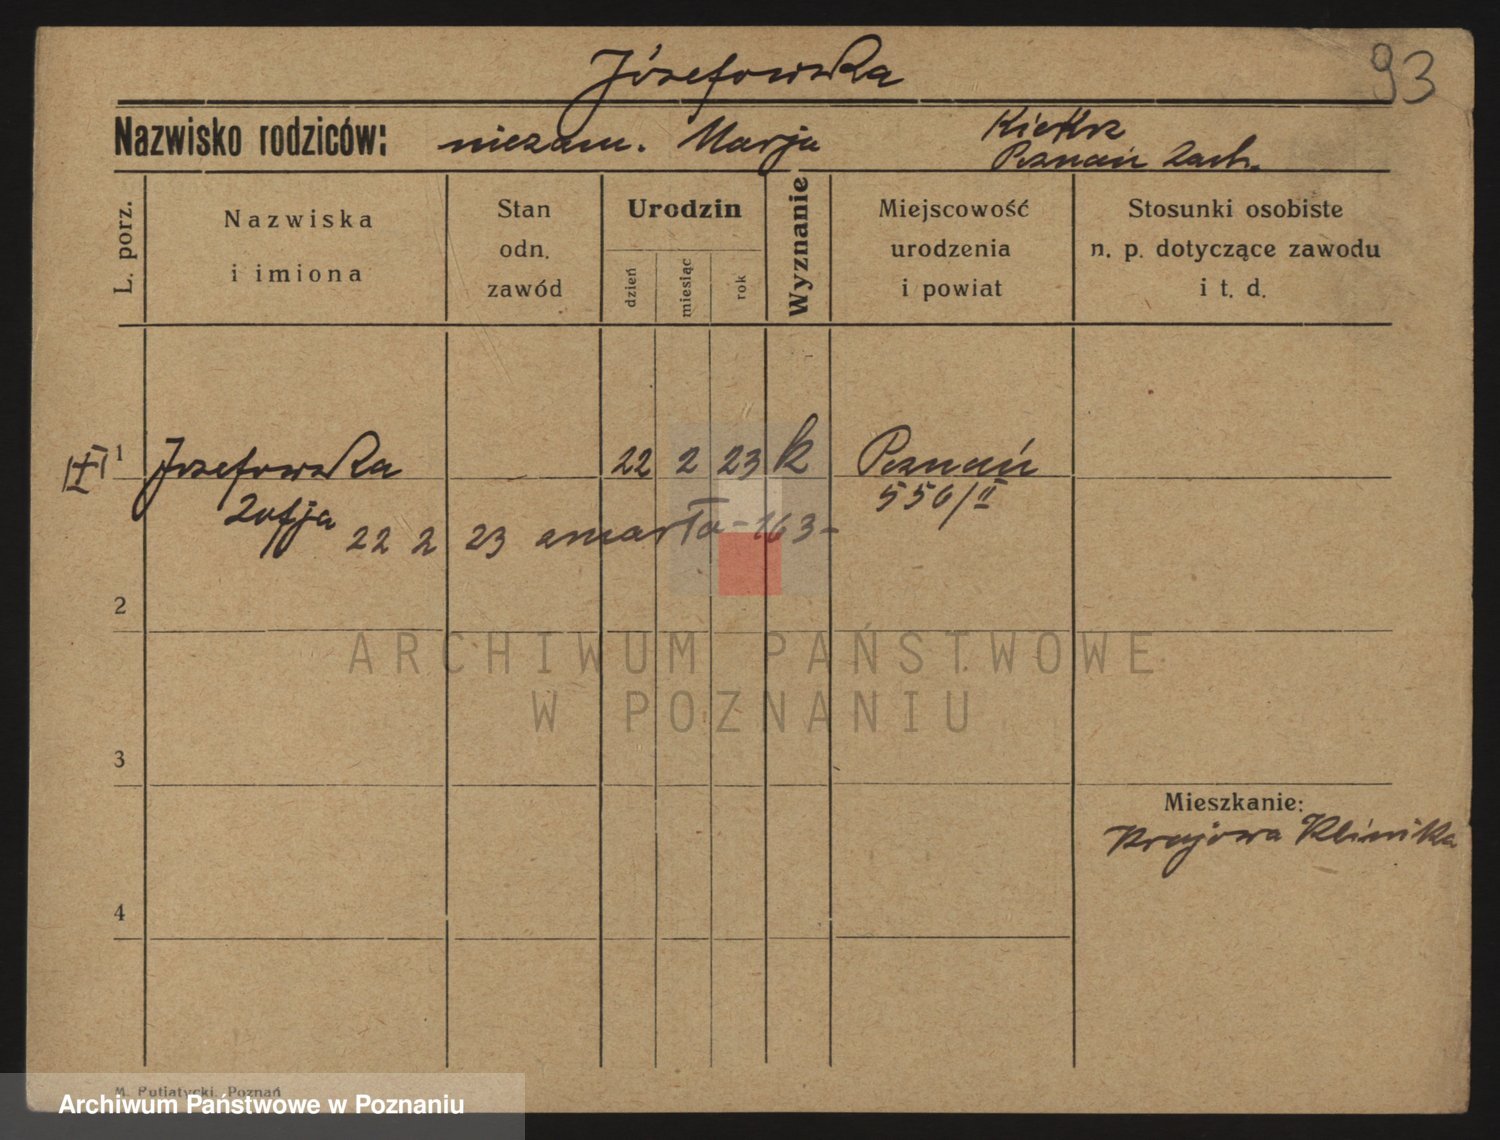 Józefowska
93
Nazwisko rodziców: niezam. Marja
Kiekrz
Poznań Zach.
L. porz.
Nazwiska
i imiona
Stan
odn.
zawód
Urodzin
dzień
miesiąc
rok
Wyznanie
Miejscowość
urodzenia
i powiat
Stosunki osobiste
n. p. dotyczące zawodu
i t. d.
1 Józefowska 22 2 23 k Poznań
Zofja 550/II
22 2 23 zmarła - 163 -
2
3
4
Mieszkanie:
Krajowa Klinika
ARCHIWUM PAŃSTWOWE
W POZNANIU
M. Putiatycki, Poznań
Archiwum Państwowe w Poznaniu